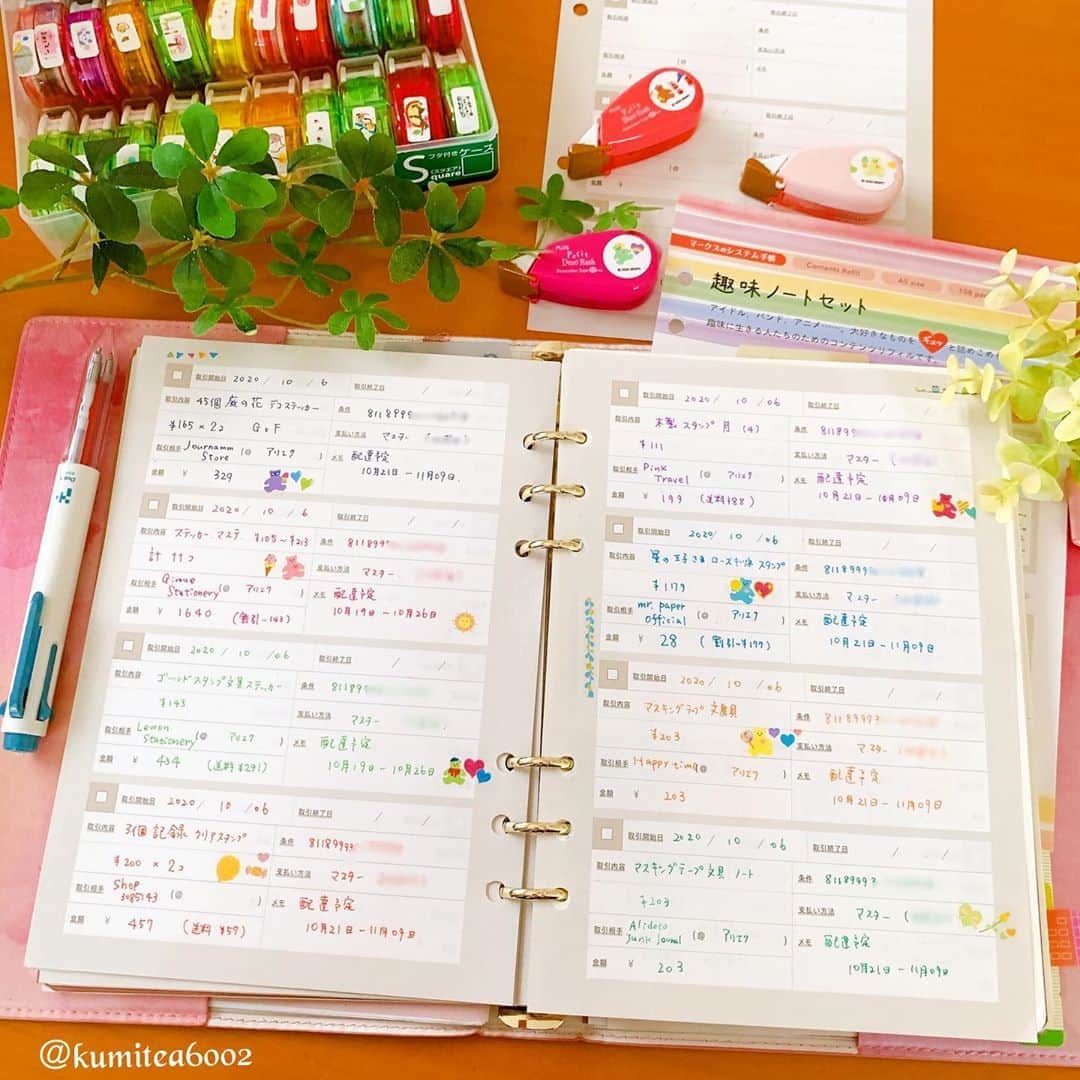 フタ付きケース
Square
(スクエア)
PLUS
Petit
Deco Rush
Decoration Tape
マークスのシステム手帳
Contents Refill
A5 size
趣味ノートセット
アイドル、バンド、アニメ……、大好きなものを
趣味に生きる人たちのためのコンテンツリフィルです。
取引開始日 2020 / 10 / 6 取引終了日 / /
取引内容 45個 庭の花 デコステッカー 条件 8118995
¥165×2コ GoF 支払い方法 マスター
取引相手 Journamm Store (@ アリエク ) メモ 配達予定
金額 ¥ 329 10月21日-11月09日.
取引開始日 2020 / 10 / 6 取引終了日 / /
取引内容 ステッカー、マステ ¥105~¥213 条件 811899
計 11コ 支払い方法 マスター
取引相手 Stationery (@ アリエク ) メモ 配達予定
金額 ¥ 1640 (割引-143) 10月19日-10月26日
取引開始日 2020 / 10 / 06 取引終了日 / /
取引内容 ゴールドスタンプ文具ステッカー 条件 811899
¥143 支払い方法 マスター
取引相手 Stationery (@ アリエク ) メモ 配達予定
金額 ¥ 434 (送料¥291) 10月19日-10月26日
取引開始日 2020 / 10 / 06 取引終了日 / /
取引内容 3個 記録 クリアスタンプ 条件 8118999
¥200 × 2コ 支払い方法 マスター
取引相手 Shop (@ ) メモ 配達予定
金額 ¥ 457 (送料 ¥57) 10月21日-11月09日
取引開始日 2020 / 10 / 06 取引終了日 / /
取引内容 木製 スタンプ 月 (4) 条件 8118995
¥111 支払い方法 マスター (
取引相手 Pink Travel (@ アリエク ) メモ 配達予定
金額 ¥ 199 (送料¥88) 10月21日-10月09日
取引開始日 2020 / 10 / 06 取引終了日 / /
取引内容 星の王子さま ローズ スタンプ 条件 8118999
¥179 支払い方法 マスター (
取引相手 mr. paper official (@ アリエク ) メモ 配達予定
金額 ¥ 28 (割引-¥177) 10月21日-11月09日
取引開始日 2020 / 10 / 06 取引終了日 / /
取引内容 マスキングテープ 文房具 条件 8118999
¥203 支払い方法 マスター (
取引相手 Happy time (@ アリエク ) メモ 配達予定
金額 ¥ 203 10月21日-11月09日
取引開始日 2020 / 10 / 06 取引終了日 / /
取引内容 マスキングテープ 文具 ノート 条件 8118999
¥203 支払い方法 マスター (
取引相手 Alideco Junk Jounal (@ アリエク ) メモ 配達予定
金額 ¥ 203 10月21日-11月09日
@kumitea6002